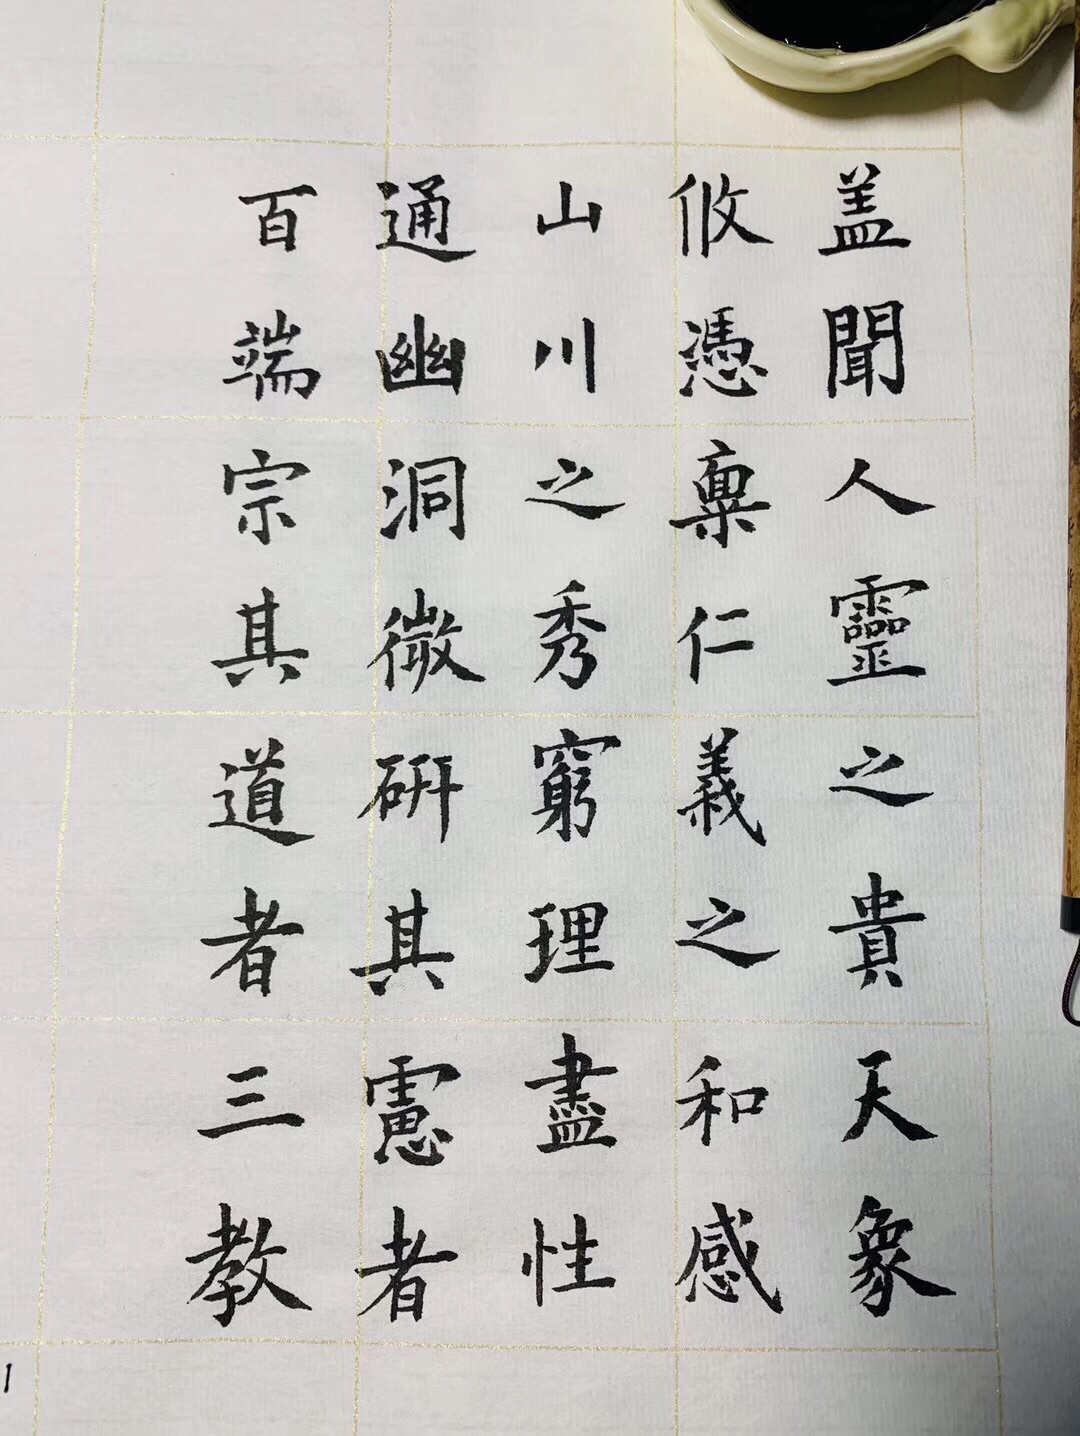 盖聞人靈之貴天象
攸憑禀仁義之和感
山川之秀窮理盡性
通幽洞微研其慮者
百端宗其道者三教